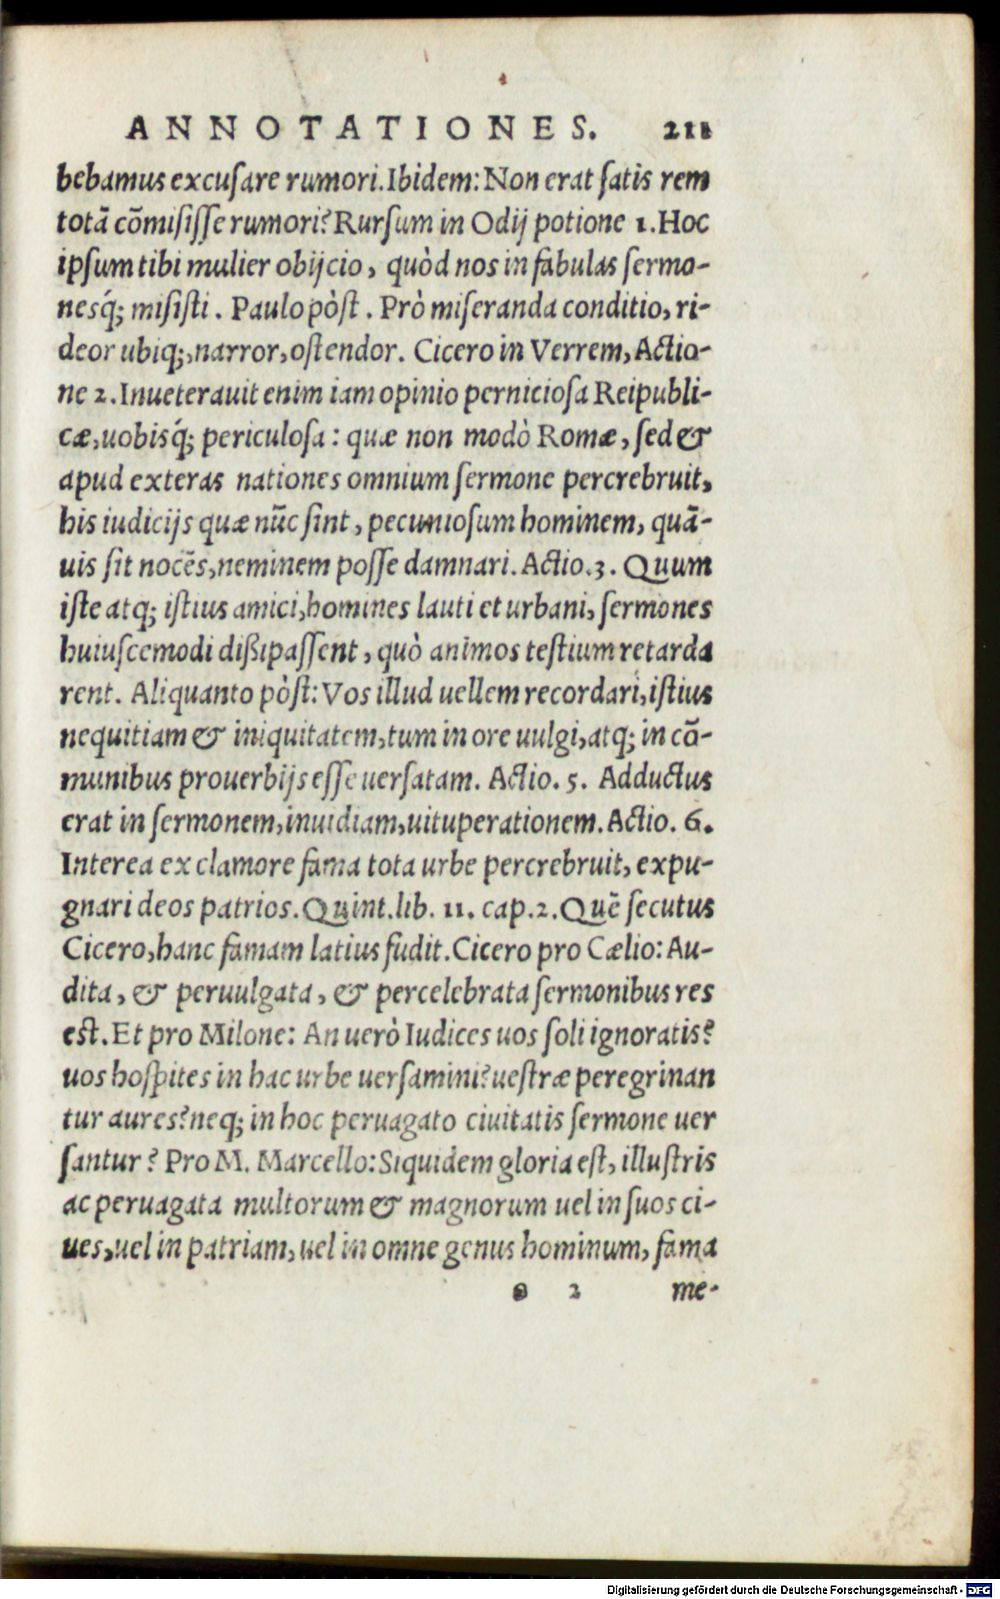 ANNOTATIONES. 211
bebamus excusare rumori. Ibidem: Non erat satis rem
totā cōmisisse rumori? Rursum in Odij potione 1. Hoc
ipsum tibi mulier obijcio, quòd nos in fabulas sermo-
nesq́; misisti. Paulo pòst. Prò miseranda conditio, ri-
deor ubiq;, narror, ostendor. Cicero in Verrem, Actio-
ne 2. Inueterauit enim iam opinio perniciosa Reipubli-
cæ, uobisq́; periculosa: quæ non modò Romæ, sed &
apud exteras nationes omnium sermone percrebruit,
his iudicijs quæ nūc sint, pecuniosum hominem, quā-
uis sit nocēs, neminem posse damnari. Actio. 3. Quum
iste atq; istius amici, homines lauti et urbani, sermones
huiuscemodi dißipassent, quò animos testium retarda
rent. Aliquanto pòst: Vos illud uellem recordari, istius
nequitiam & iniquitatem, tum in ore uulgi, atq; in cō-
munibus prouerbijs esse uersatam. Actio. 5. Adductus
erat in sermonem, inuidiam, uituperationem. Actio. 6.
Interea ex clamore fama tota urbe percrebruit, expu-
gnari deos patrios. Quint. lib. 11. cap. 2. Quē secutus
Cicero, hanc famam latius fudit. Cicero pro Cælio: Au-
dita, & peruulgata, & percelebrata sermonibus res
est. Et pro Milone: An uerò Iudices uos soli ignoratis?
uos hospites in hac urbe uersamini? uestræ peregrinan
tur aures? neq; in hoc peruagato ciuitatis sermone uer
santur? Pro M. Marcello: Siquidem gloria est, illustris
ac peruagata multorum & magnorum uel in suos ci-
ues, uel in patriam, uel in omne genus hominum, fama
o 2 me-
Digitalisierung gefördert durch die Deutsche Forschungsgemeinschaft - DFG